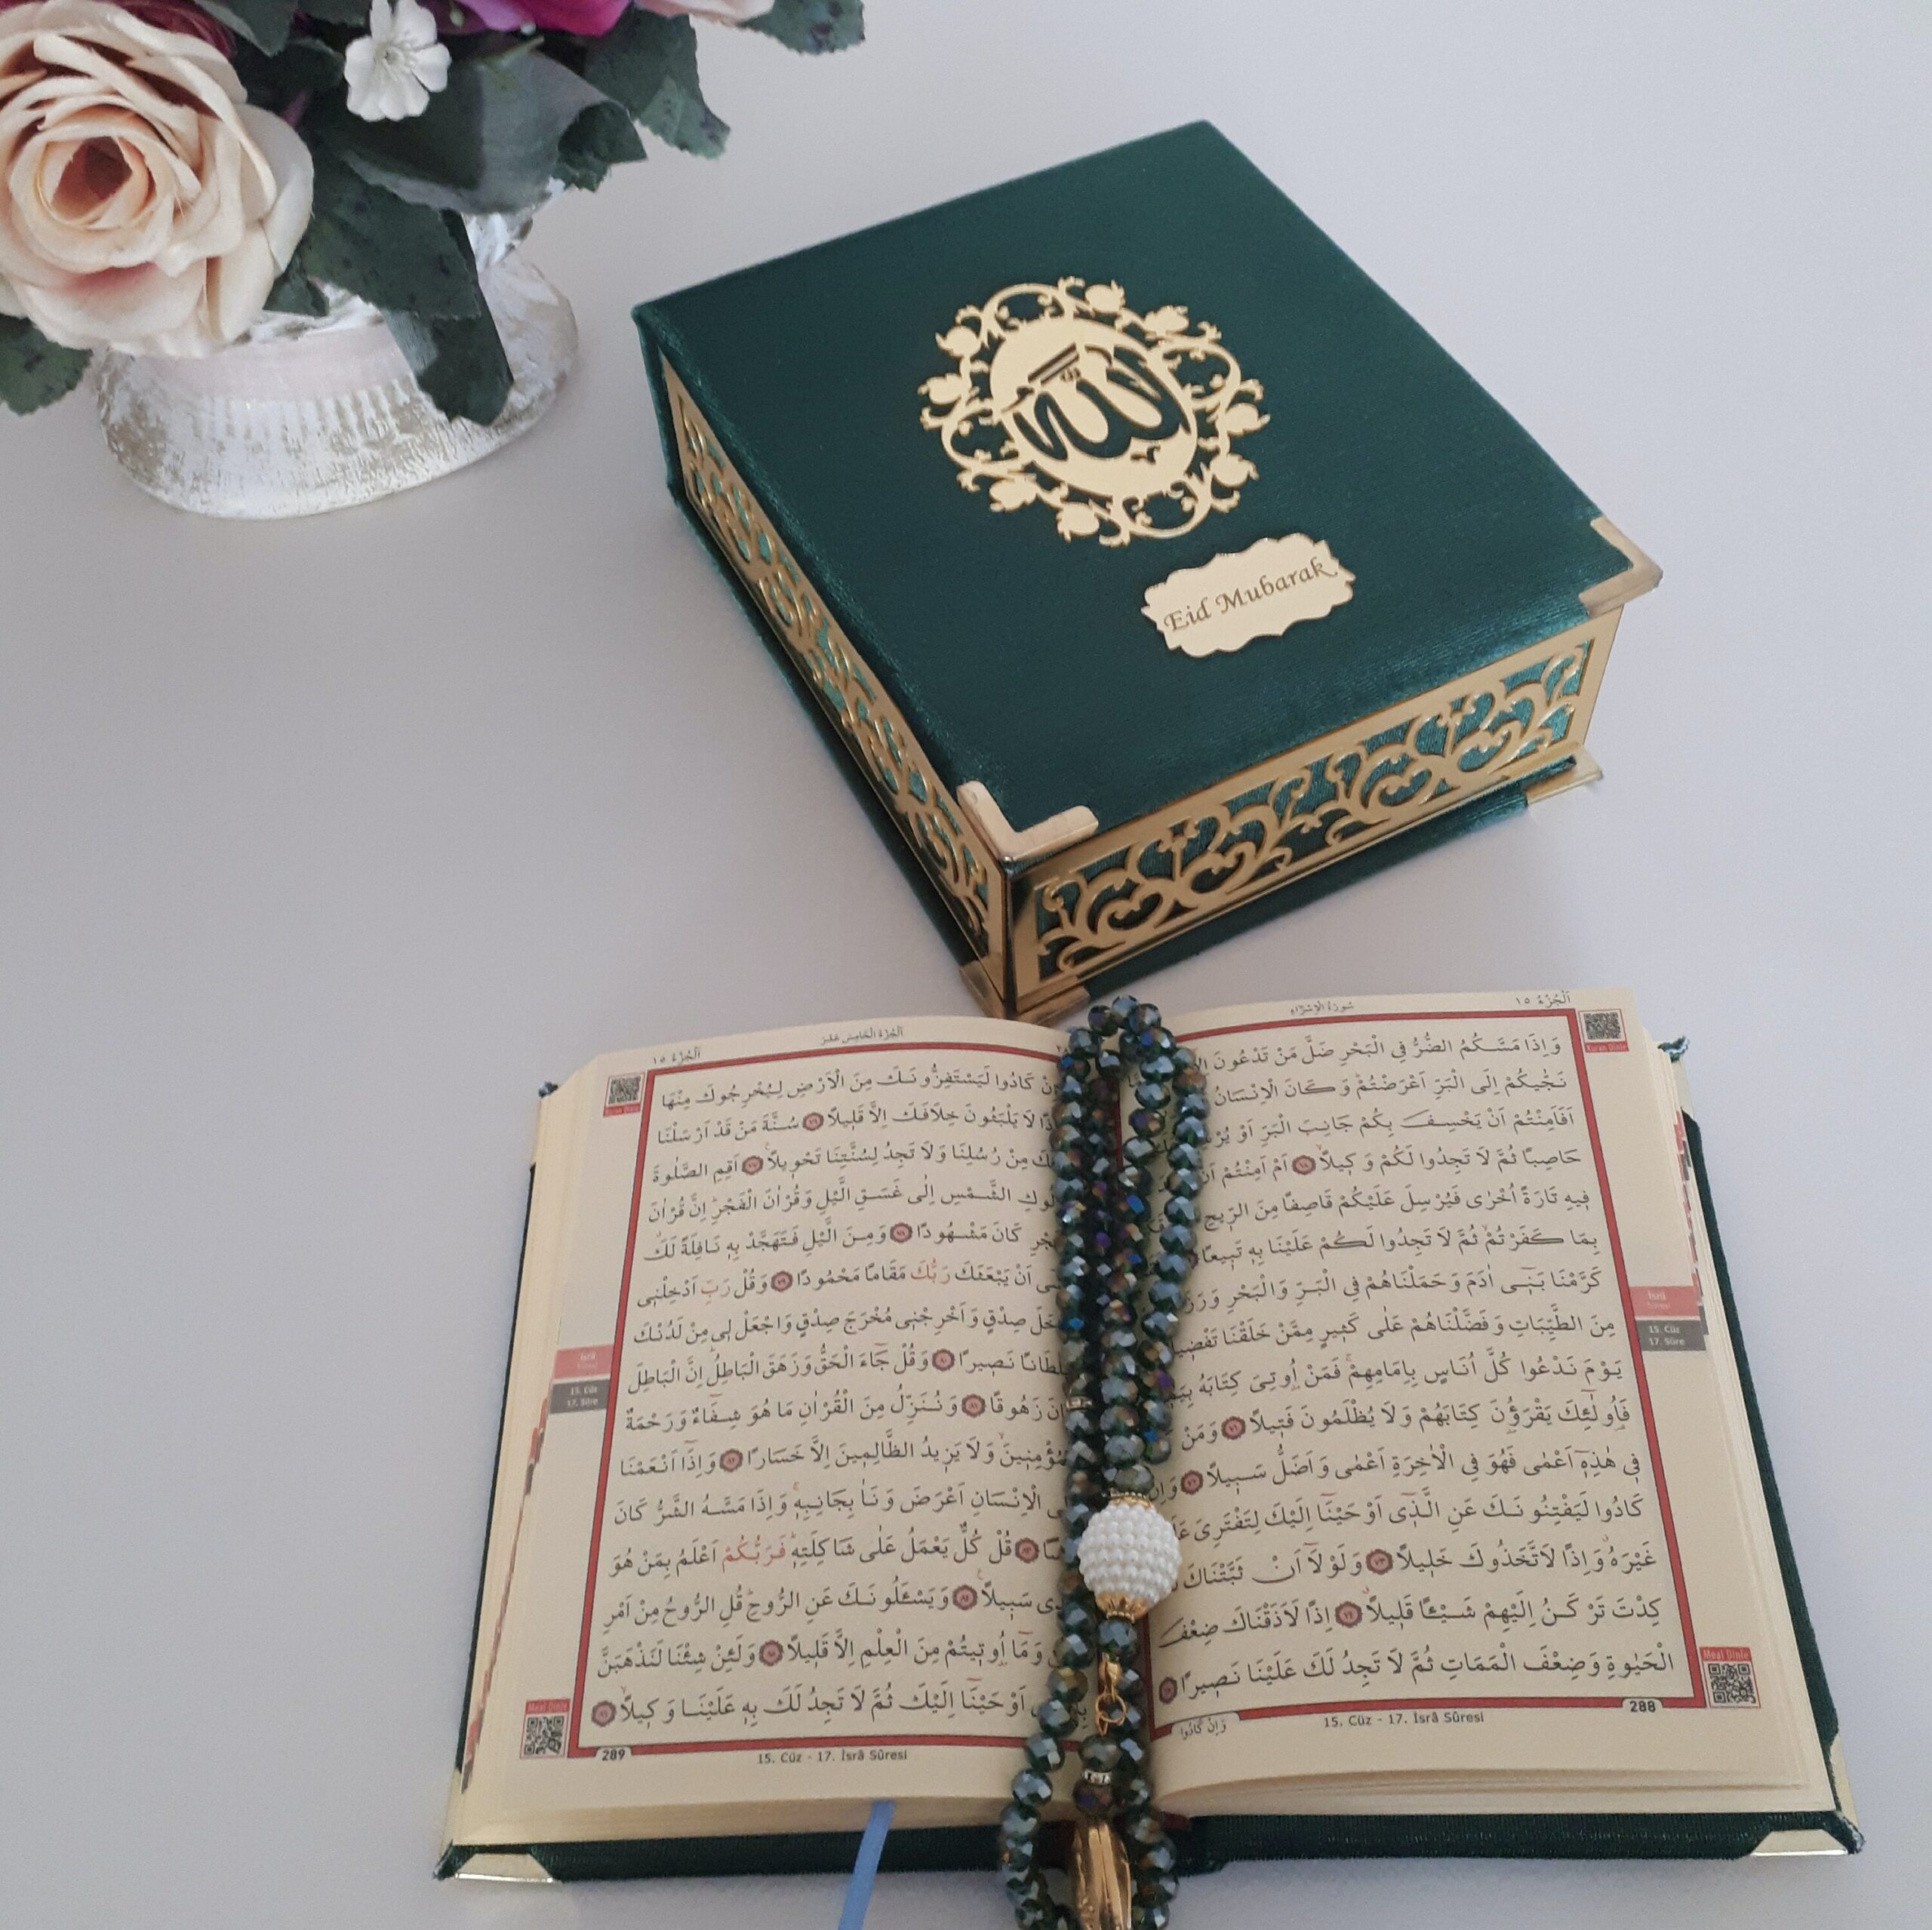 الله
Eid Mubarak
اَلْجُزْءُ ١٥
سُورَةُ الْاِسْرَاءِ
Kuran Dinle
وَاِذَا مَسَّكُمُ الضُّرُّ فِي الْبَحْرِ ضَلَّ مَنْ تَدْعُونَ
نَجّٰيكُمْ اِلَى الْبَرِّ اَعْرَضْتُمْ وَكَانَ الْاِنْسَانُ
اَفَاَمِنْتُمْ اَنْ يَخْسِفَ بِكُمْ جَانِبَ الْبَرِّ اَوْ
حَاصِبًا ثُمَّ لَا تَجِدُوا لَكُمْ وَكِيلًا ٦٨ اَمْ اَمِنْتُمْ
فِيهِ تَارَةً اُخْرٰى فَيُرْسِلَ عَلَيْكُمْ قَاصِفًا مِنَ الرِّيحِ
بِمَا كَفَرْتُمْ ثُمَّ لَا تَجِدُوا لَكُمْ عَلَيْنَا بِهِ تَبِيعًا
كَرَّمْنَا بَنِٓى اٰدَمَ وَحَمَلْنَاهُمْ فِي الْبَرِّ وَالْبَحْرِ
مِنَ الطَّيِّبَاتِ وَفَضَّلْنَاهُمْ عَلٰى كَثِيرٍ مِمَّنْ خَلَقْنَا
يَوْمَ نَدْعُوا كُلَّ اُنَاسٍ بِاِمَامِهِمْ فَمَنْ اُوتِىَ كِتَابَهُ
فَاُولٰٓئِكَ يَقْرَؤُ۫نَ كِتَابَهُمْ وَلَا يُظْلَمُونَ فَتِيلًا ٧١ وَمَنْ
فِي هٰذِهِٓ اَعْمٰى فَهُوَ فِي الْاٰخِرَةِ اَعْمٰى وَاَضَلُّ سَبِيلًا ٧٢
كَادُوا لَيَفْتِنُونَكَ عَنِ الَّذِٓى اَوْحَيْنَٓا اِلَيْكَ لِتَفْتَرِىَ
غَيْرَهُ وَاِذًا لَاتَّخَذُوكَ خَلِيلًا ٧٣ وَلَوْلَٓا اَنْ ثَبَّتْنَاكَ
كِدْتَ تَرْكَنُ اِلَيْهِمْ شَيْـًٔا قَلِيلًا ٧٤ اِذًا لَاَذَقْنَاكَ ضِعْفَ
الْحَيٰوةِ وَضِعْفَ الْمَمَاتِ ثُمَّ لَا تَجِدُ لَكَ عَلَيْنَا نَصِيرًا
İsrâ
15. Cüz
17. Sûre
Meal Dinle
288
15. Cüz - 17. İsrâ Sûresi
وَاِنْ كَادُوا
اَلْجُزْءُ الْخَامِسَ عَشَرَ
اَلْجُزْءُ ١٥
كَادُوا لَيَسْتَفِزُّونَكَ مِنَ الْاَرْضِ لِيُخْرِجُوكَ مِنْهَا
لَا يَلْبَثُونَ خِلَافَكَ اِلَّا قَلِيلًا ٧٦ سُنَّةَ مَنْ قَدْ اَرْسَلْنَا
مِنْ رُسُلِنَا وَلَا تَجِدُ لِسُنَّتِنَا تَحْوِيلًا ٧٧ اَقِمِ الصَّلٰوةَ
الشَّمْسِ اِلٰى غَسَقِ الَّيْلِ وَقُرْاٰنَ الْفَجْرِ اِنَّ قُرْاٰنَ
كَانَ مَشْهُودًا ٧٨ وَمِنَ الَّيْلِ فَتَهَجَّدْ بِهِ نَافِلَةً لَكَ
اَنْ يَبْعَثَكَ رَبُّكَ مَقَامًا مَحْمُودًا ٧٩ وَقُلْ رَبِّ اَدْخِلْنِى
صِدْقٍ وَاَخْرِجْنِى مُخْرَجَ صِدْقٍ وَاجْعَلْ لِى مِنْ لَدُنْكَ
نَصِيرًا ٨٠ وَقُلْ جَٓاءَ الْحَقُّ وَزَهَقَ الْبَاطِلُ اِنَّ الْبَاطِلَ
زَهُوقًا ٨١ وَنُنَزِّلُ مِنَ الْقُرْاٰنِ مَا هُوَ شِفَٓاءٌ وَرَحْمَةٌ
وَلَا يَزِيدُ الظَّالِمِينَ اِلَّا خَسَارًا ٨٢ وَاِذَٓا اَنْعَمْنَا
الْاِنْسَانِ اَعْرَضَ وَنَاٰ بِجَانِبِهِ وَاِذَا مَسَّهُ الشَّرُّ كَانَ
قُلْ كُلٌّ يَعْمَلُ عَلٰى شَاكِلَتِهِ فَرَبُّكُمْ اَعْلَمُ بِمَنْ هُوَ
سَبِيلًا ٨٤ وَيَسْـَٔلُونَكَ عَنِ الرُّوحِ قُلِ الرُّوحُ مِنْ اَمْرِ
وَمَٓا اُوتِيتُمْ مِنَ الْعِلْمِ اِلَّا قَلِيلًا ٨٥ وَلَئِنْ شِئْنَا لَنَذْهَبَنَّ
اَوْحَيْنَٓا اِلَيْكَ ثُمَّ لَا تَجِدُ لَكَ بِهِ عَلَيْنَا وَكِيلًا ٨٦
İsrâ
15. Cüz
17. Sûre
Meal Dinle
289
15. Cüz - 17. İsrâ Sûresi